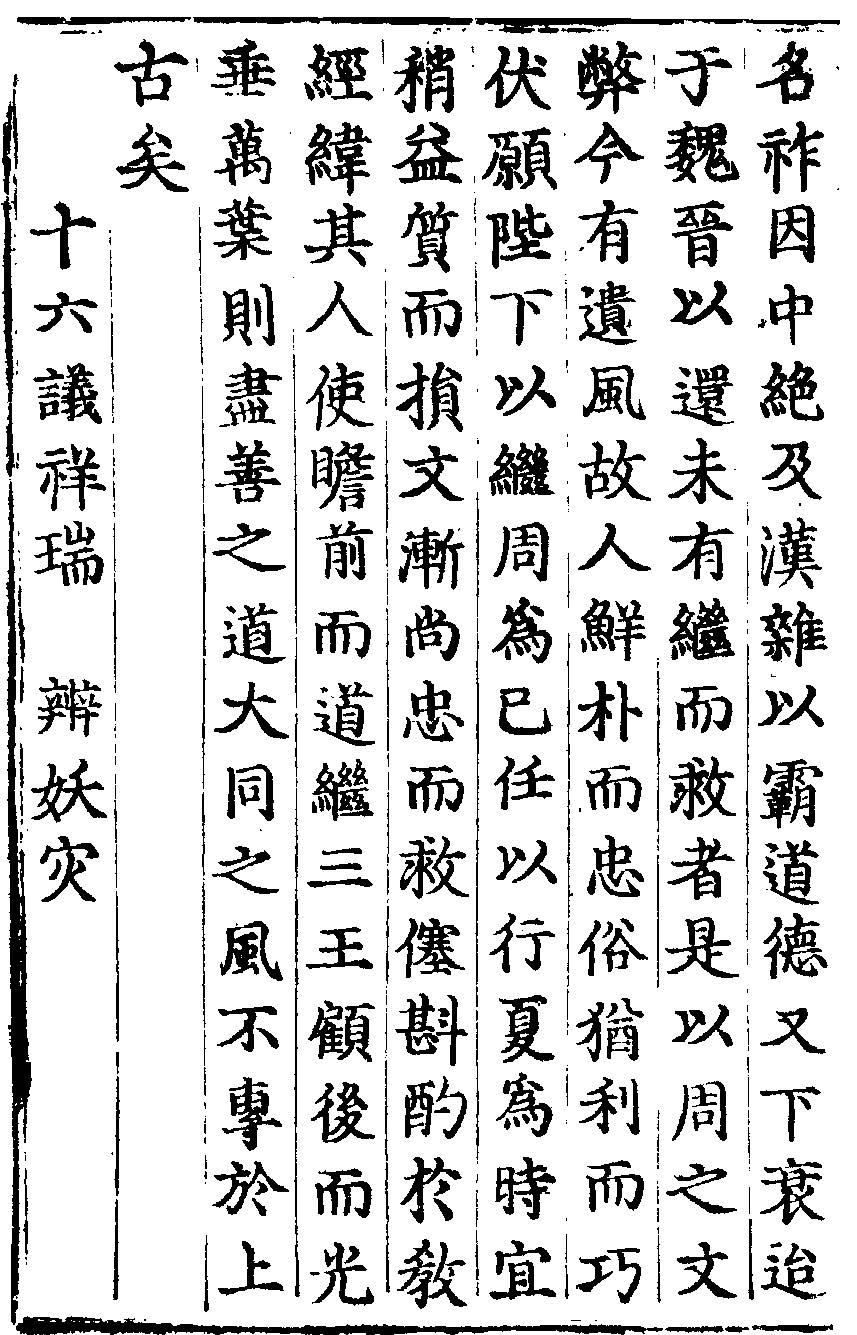 名祚因中絶及漢雜以霸道德又下衰迨
于魏晉以還未有繼而救者是以周之文
弊今有遺風故人鮮朴而忠俗猶利而巧
伏願陛下以繼周爲已任以行夏爲時宜
稍益質而損文漸尚忠而救僿斟酌於教
經緯其人使瞻前而道繼三王顧後而光
垂萬葉則盡善之道大同之風不專於上
古矣
十六議祥瑞　辨妖灾